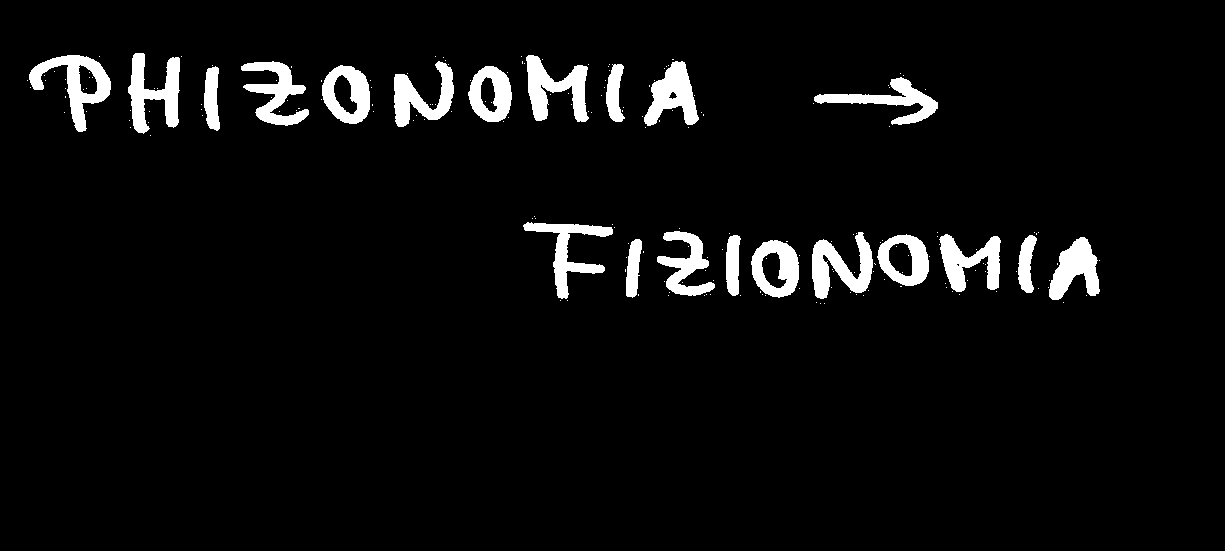 PHIZONOMIA →
FIZIONOMIA